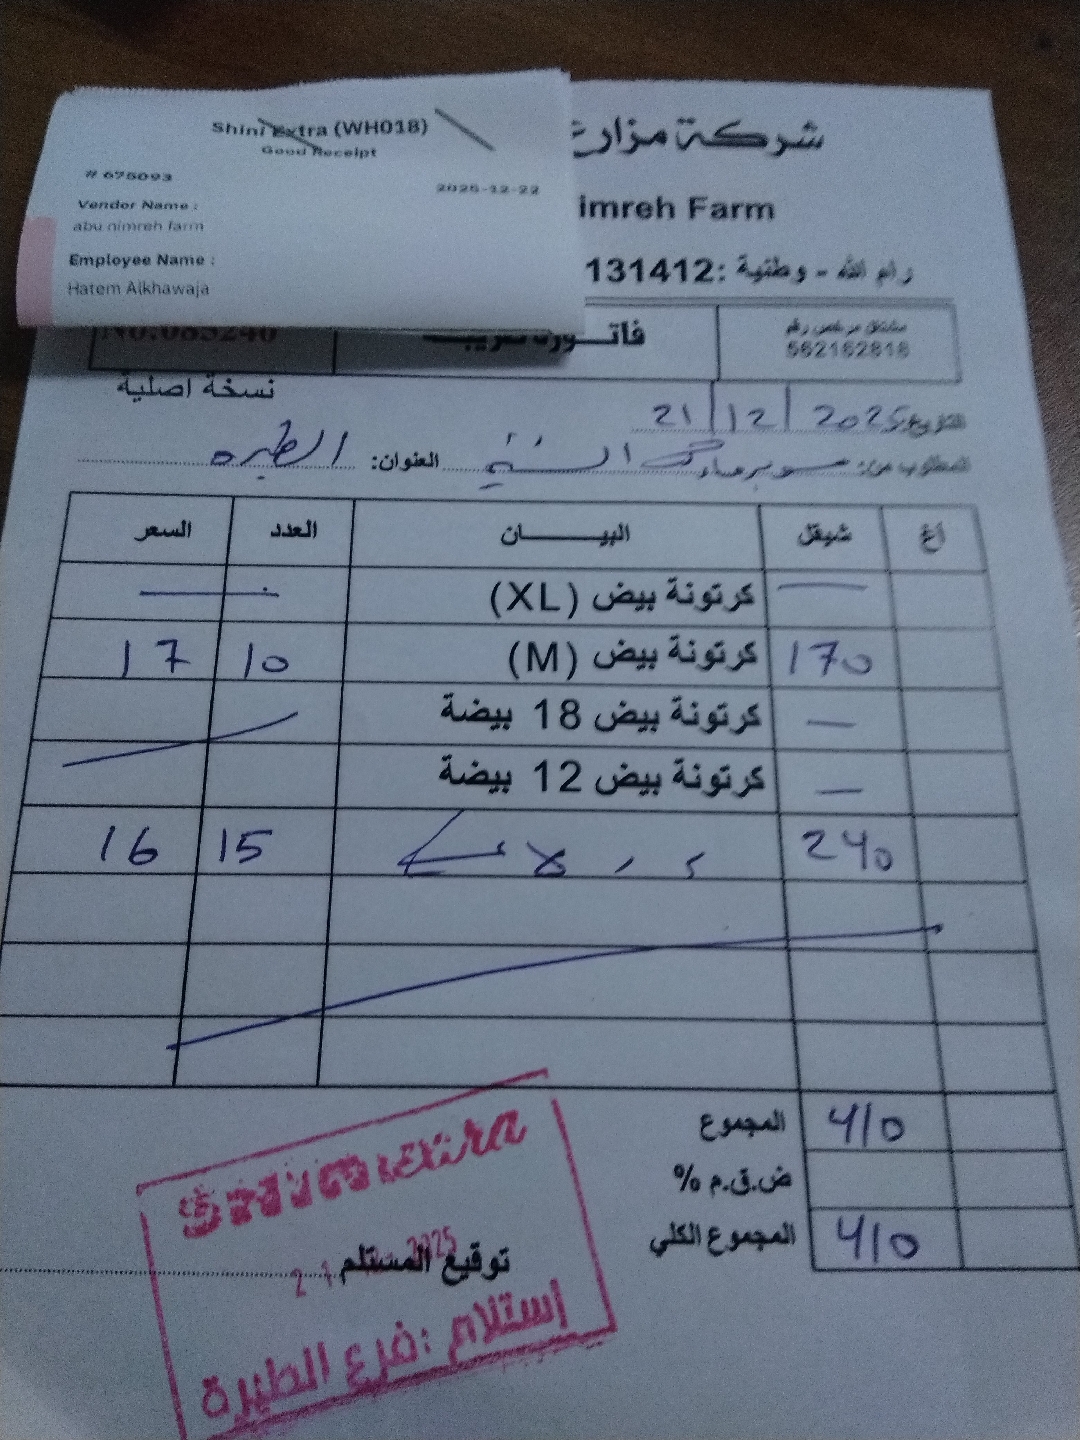 Shini Extra (WH018)
Good Receipt
# 675093
2025-12-22
Vendor Name :
abu nimreh farm
Employee Name :
Hatem Alkhawaja
شركة مزارع
imreh Farm
رام الله - وطنية :131412
مشتغل مرخص رقم
562162816
فاتـــورة ضريبـ
No.083240
نسخة اصلية
التاريخ: 21/12/2025
المطلوب من: سوبرماركت الشني العنوان: الطيره
أغ شيقل البيـــــــان العدد السعر
كرتونة بيض (XL)
170 كرتونة بيض (M) 10 17
كرتونة بيض 18 بيضة
كرتونة بيض 12 بيضة
240 15 16
المجموع 410
ض.ق.م %
المجموع الكلي 410
Extra
توقيع المستلم
2025
إستلام : فرع الطيرة